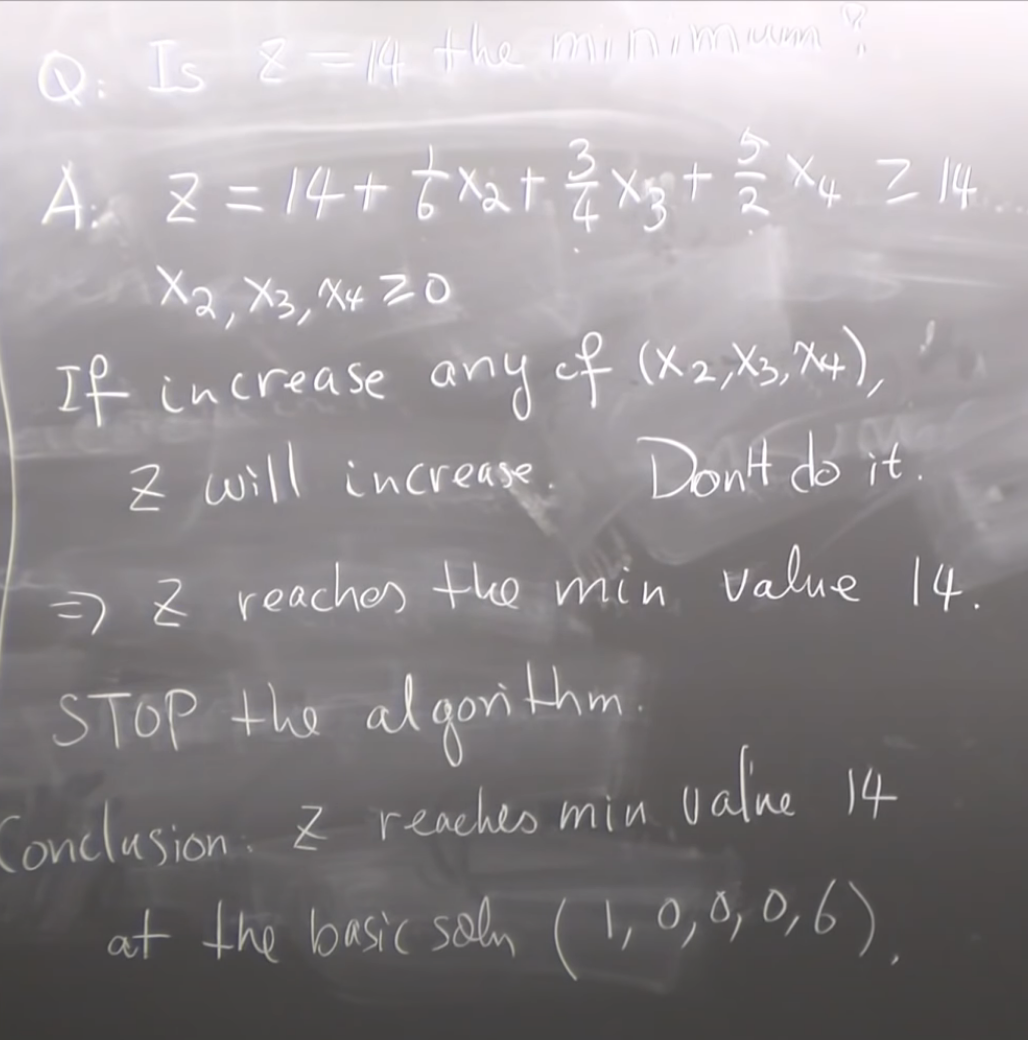 Q: Is z = 14 the minimum?
A: z = 14 + 1/6 x₂ + 3/4 x₃ + 5/2 x₄ ≥ 14...
x₂, x₃, x₄ ≥ 0
If increase any of (x₂, x₃, x₄),
z will increase. Don't do it.
⇒ z reaches the min value 14.
STOP the algorithm.
Conclusion: z reaches min value 14
at the basic soln (1, 0, 0, 0, 6).